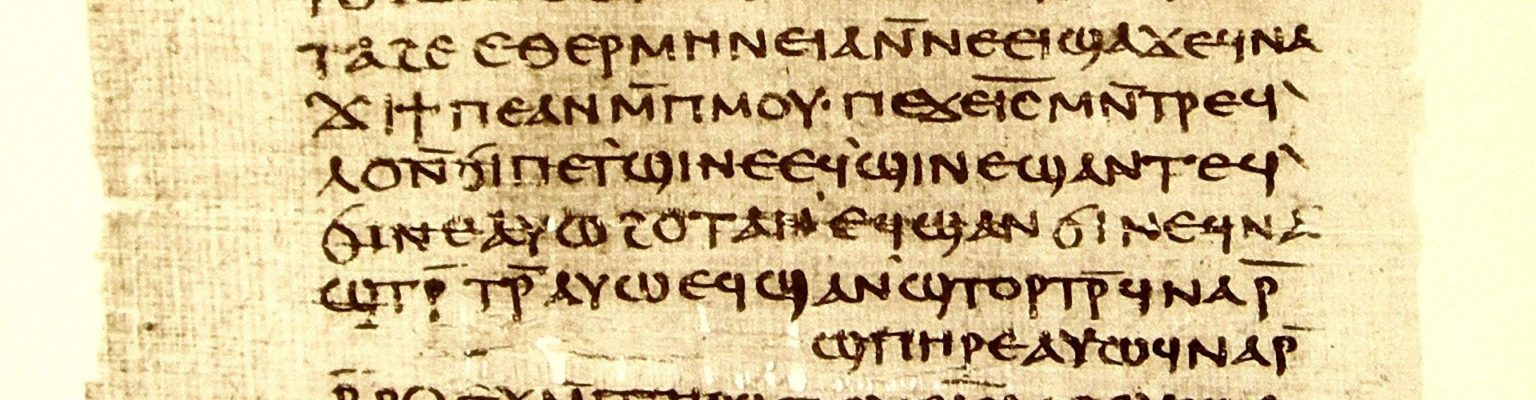 ⲧⲁϩⲉ ⲉⲑⲉⲣⲙⲏⲛⲉⲓⲁ ⲛ̄ⲛⲉⲉⲓϣⲁϫⲉ ϥⲛⲁ
ϫⲓ ϯⲡⲉ ⲁⲛ ⲙ̄ⲡⲙⲟⲩ· ⲡⲉϫⲉ ⲓ̅ⲥ̅ ⲙⲛ̄ⲧⲣⲉϥ
ⲗⲟ ⲛ̄ϭⲓ ⲡⲉⲧϣⲓⲛⲉ ⲉϥϣⲓⲛⲉ ϣⲁⲛⲧⲉϥ
ϭⲓⲛⲉ ⲁⲩⲱ ϩⲟⲧⲁⲛ ⲉϥϣⲁⲛϭⲓⲛⲉ ϥⲛⲁ
ϣⲧⲣ̄ⲧⲣ̄ ⲁⲩⲱ ⲉϥϣⲁⲛϣⲧⲟⲣⲧⲣ̄ ϥⲛⲁⲣ̄
ϣⲡⲏⲣⲉ ⲁⲩⲱ ϥⲛⲁⲣ̄